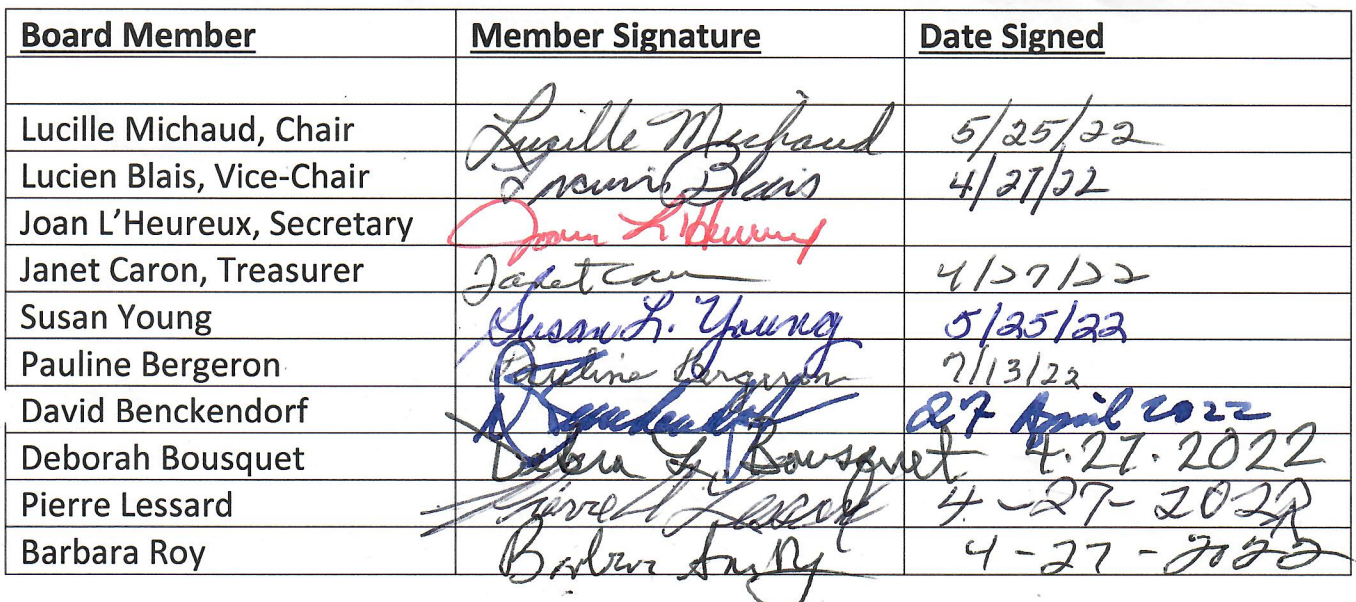 Board Member Member Signature Date Signed
Lucille Michaud, Chair Lucille Michaud 5/25/22
Lucien Blais, Vice-Chair Lucien Blais 4/27/22
Joan L'Heureux, Secretary Joan L'Heureux
Janet Caron, Treasurer Janet Caron 4/27/22
Susan Young Susan L. Young 5/25/22
Pauline Bergeron Pauline Bergeron 7/13/22
David Benckendorf D Benckendorf 27 April 2022
Deborah Bousquet Debora L. Bousquet 4.27.2022
Pierre Lessard Pierre Lessard 4-27-2022
Barbara Roy Barbara 4-27-2022